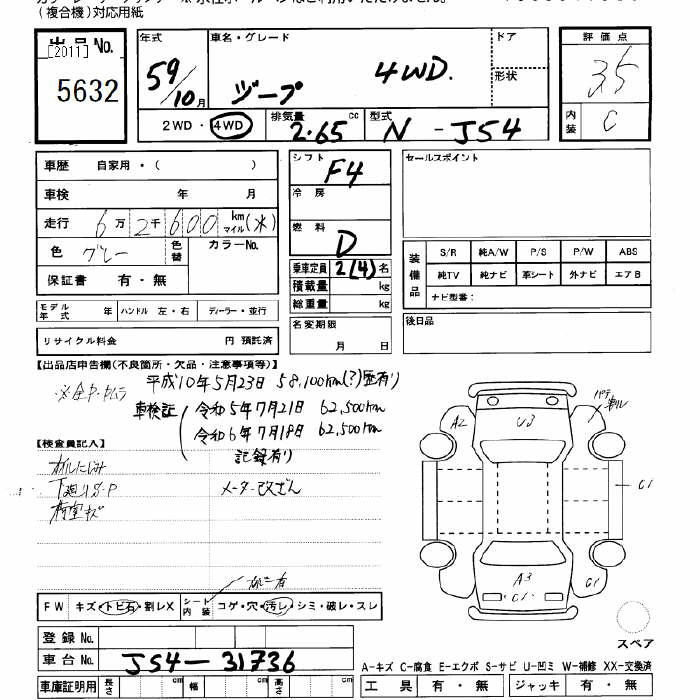 (複合機)対応用紙
出品No.
[2011]
5632
年式
59/10月
車名・グレード
ジープ 4WD.
ドア
形状
評価点
3.5
内装 C
2WD・4WD
排気量 2.65 cc
型式 N-J54
車歴 自家用・( )
車検 年 月
走行 6万2千600 km マイル(メ)
色 グレー 色替 カラーNo.
保証書 有・無
シフト F4
冷房
燃料 D
乗車定員 2(4)名
積載量 kg
総重量 kg
セールスポイント
装備品
S/R 純A/W P/S P/W ABS
純TV 純ナビ 革シート 外ナビ エアB
ナビ型番:
モデル年式 年 ハンドル 左・右 ディーラー・並行
名変期限 月 日
後日品
リサイクル料金 円 預託済
【出品店申告欄(不良箇所・欠品・注意事項等)】
平成10年5月23日 58,100km(?)歴有り
車検証 令和5年7月21日 62,500km
令和6年7月18日 62,500km
記録有り
【検査員記入】
オイルにじみ
下廻りS・P
メーター改ざん
荷室キズ
FW キズ・トビ石・割レX シート内装 コゲ・穴・汚レ・シミ・破レ・スレ
登録No.
車台No. J54-31736
車庫証明用 長さ cm 幅 cm 高さ cm
A2
U3
パテ
C1
A3
C1
C1
スペア
A-キズ C-腐食 E-エクボ S-サビ U-凹ミ W-補修 XX-交換済
工具 有・無 ジャッキ 有・無